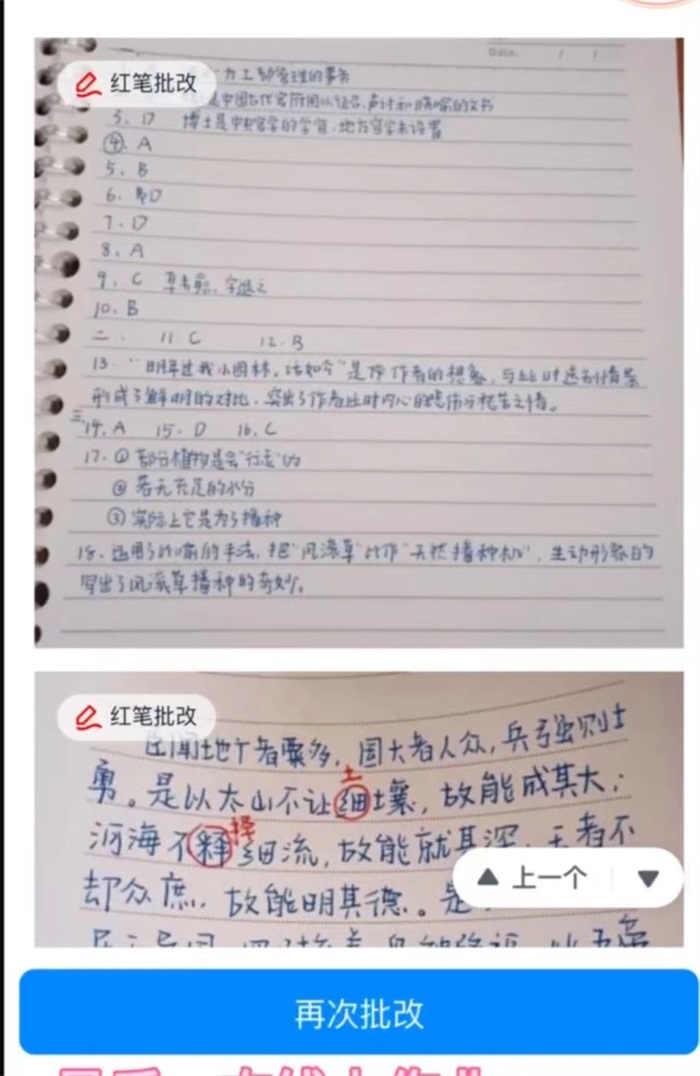 Date: / /
红笔批改
为工部管理的事务
是中国古代官府用以征召,声讨和晓喻的文书
3、D 博士是中央官学的学官,地方官学未设置
④、A
5、B
6、D
7、D
8、A
9、C 字退之
10、B
二、 11.C 12.B
13. "明年过我小园林,话如今"是作者的想象,与此时送别情景
形成了鲜明的对比,突出了作者此时内心的悲伤与
三、14.A 15.D 16.C
17.①部分植物是会"行走"的
②若无充足的水分
③实际上它是为了播种
18、运用了比喻的手法,把"风滚草"比作"天然播种机",生动形象的
写出了风滚草播种的奇妙。
红笔批改
臣闻地广者粟多,国大者人众,兵强则士
土
勇。是以太山不让细土壤,故能成其大;
择
河海不释细流,故能就其深,王者不
却众庶,故能明其德。是
上一个
再次批改